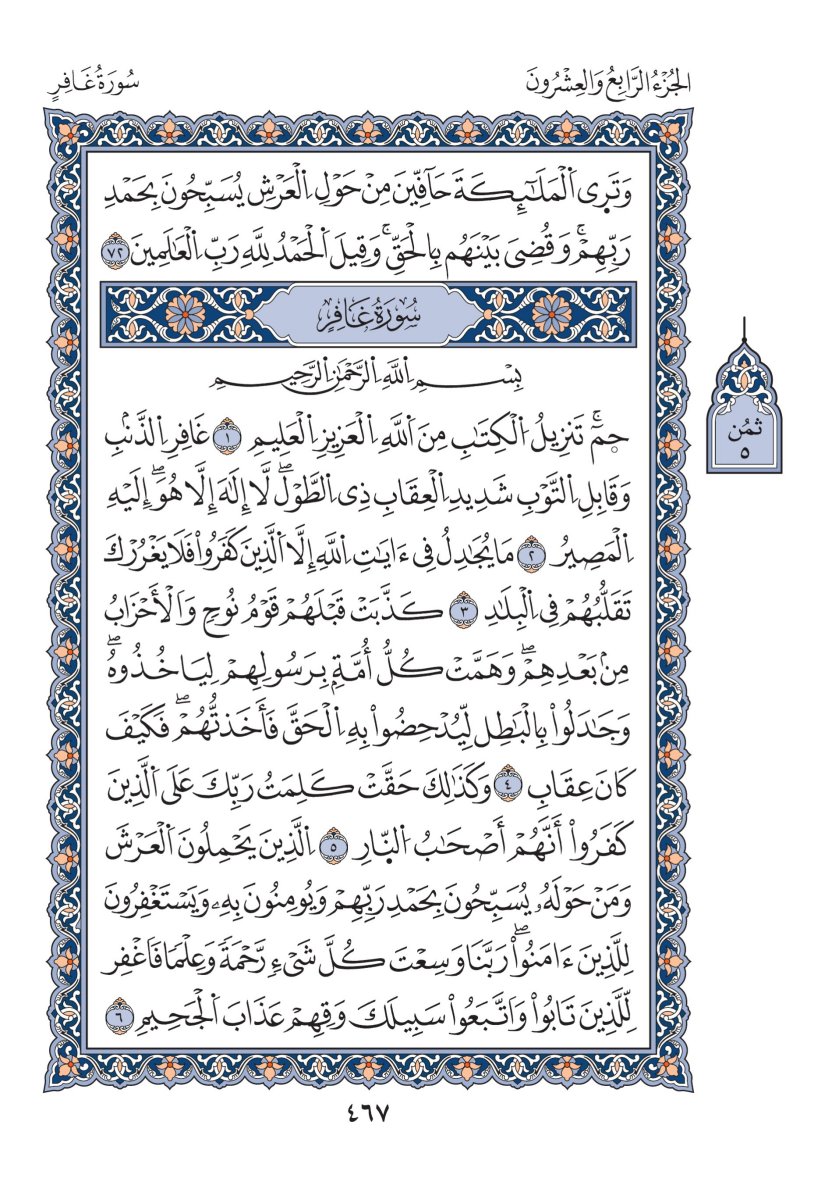 الجُزْءُ الرَّابِعُ وَالعِشْرُونَ
سُورَةُ غَافِرٍ
وَتَرَى اَ۬لْمَلَٰٓئِكَةَ حَآفِّينَ مِنْ حَوْلِ اِ۬لْعَرْشِ يُسَبِّحُونَ بِحَمْدِ
رَبِّهِمْۖ وَقُضِيَ بَيْنَهُم بِالْحَقِّۖ وَقِيلَ اَ۬لْحَمْدُ لِلهِ رَبِّ اِ۬لْعَٰلَمِينَ ٧٢
سُورَةُ غَافِرٍ
بِسْمِ اِ۬للَّهِ اِ۬لرَّحْمَٰنِ اِ۬لرَّحِيمِ
حمٓۖ تَنزِيلُ اُ۬لْكِتَٰبِ مِنَ اَ۬للَّهِ اِ۬لْعَزِيزِ اِ۬لْعَلِيمِ ١ غَافِرِ اِ۬لذَّنۢبِ
وَقَابِلِ اِ۬لتَّوْبِ شَدِيدِ اِ۬لْعِقَابِ ذِي اِ۬لطَّوْلِۖ لَآ إِلَٰهَ إِلَّا هُوَۖ إِلَيْهِ
اِ۬لْمَصِيرُ ٢ مَا يُجَٰدِلُ فِيٓ ءَايَٰتِ اِ۬للَّهِ إِلَّا اَ۬لذِينَ كَفَرُواْ فَلَا يَغْرُرْكَ
تَقَلُّبُهُمْ فِي اِ۬لْبِلَٰدِ ٣ كَذَّبَتْ قَبْلَهُمْ قَوْمُ نُوحٍ وَالْأَحْزَابُ
مِنۢ بَعْدِهِمْۖ وَهَمَّتْ كُلُّ أُمَّةِۢ بِرَسُولِهِمْ لِيَاخُذُوهُۖ
وَجَٰدَلُواْ بِالْبَٰطِلِ لِيُدْحِضُواْ بِهِ اِ۬لْحَقَّ فَأَخَذتُّهُمْۖ فَكَيْفَ
كَانَ عِقَابِ ٤ وَكَذَٰلِكَ حَقَّتْ كَلِمَتُ رَبِّكَ عَلَى اَ۬لذِينَ
كَفَرُوٓاْ أَنَّهُمْ أَصْحَٰبُ اُ۬لنّ۪ارِ ٥ اِ۬لذِينَ يَحْمِلُونَ اَ۬لْعَرْشَ
وَمَنْ حَوْلَهُۥ يُسَبِّحُونَ بِحَمْدِ رَبِّهِمْ وَيُومِنُونَ بِهِۦ وَيَسْتَغْفِرُونَ
لِلذِينَ ءَامَنُواْۖ رَبَّنَا وَسِعْتَ كُلَّ شَيْءٖ رَّحْمَةٗ وَعِلْماٗ فَاغْفِر
لِّلذِينَ تَابُواْ وَاتَّبَعُواْ سَبِيلَكَ وَقِهِمْ عَذَابَ اَ۬لْجَحِيمِ ٦
ثمُن
٥
٤٦٧